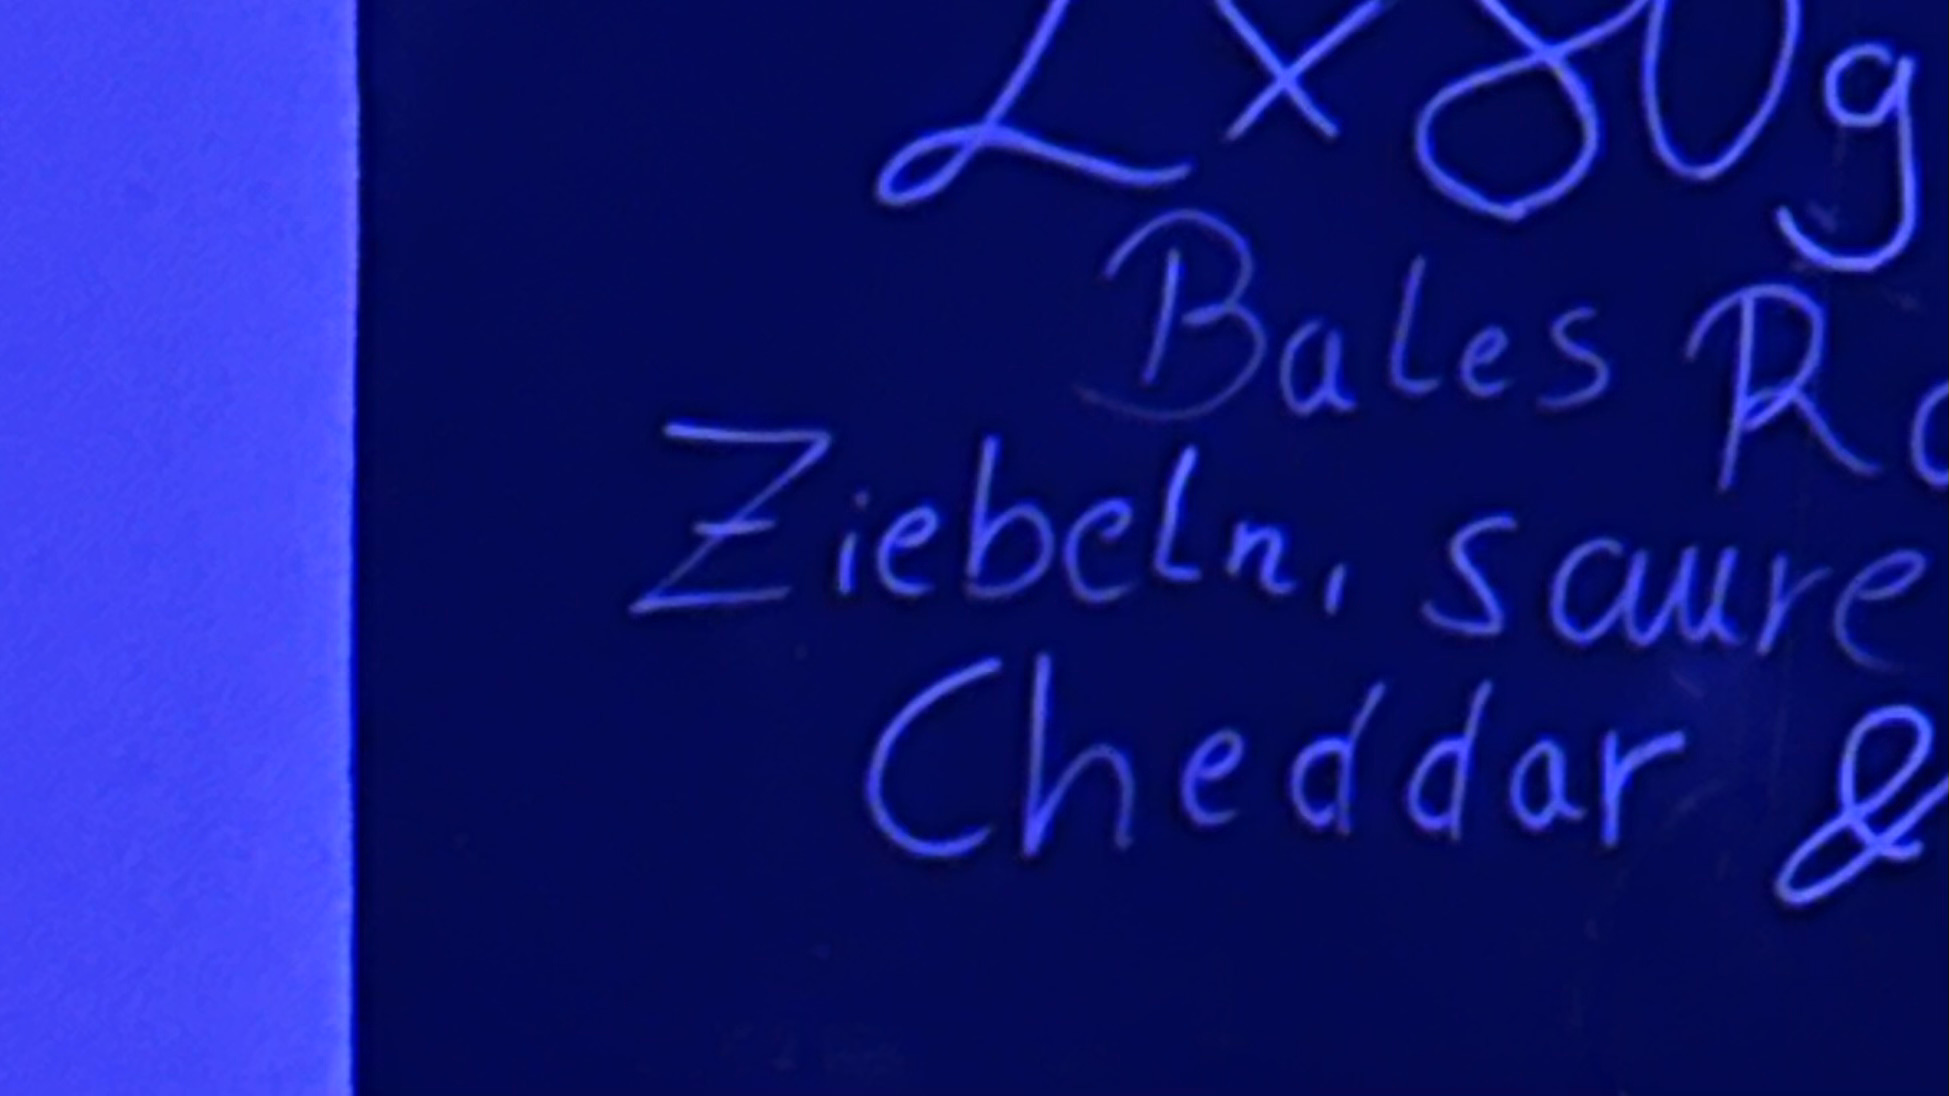 2x80g
Bales R
Ziebeln, saure
Cheddar &